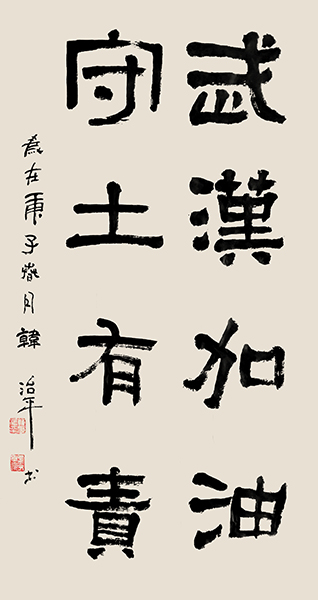 武漢加油
守土有責
歲在庚子春月韓治平书